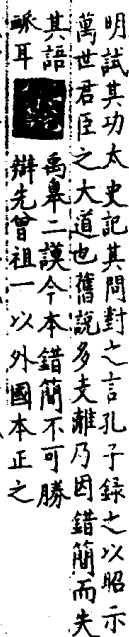 明試其功太史記其問對之言孔子錄之以昭示
萬世君臣之大道也舊說多支離乃因錯簡而失
其語
脈耳
禹皋二謨今本錯簡不可勝
辯先曾祖一以外國本正之